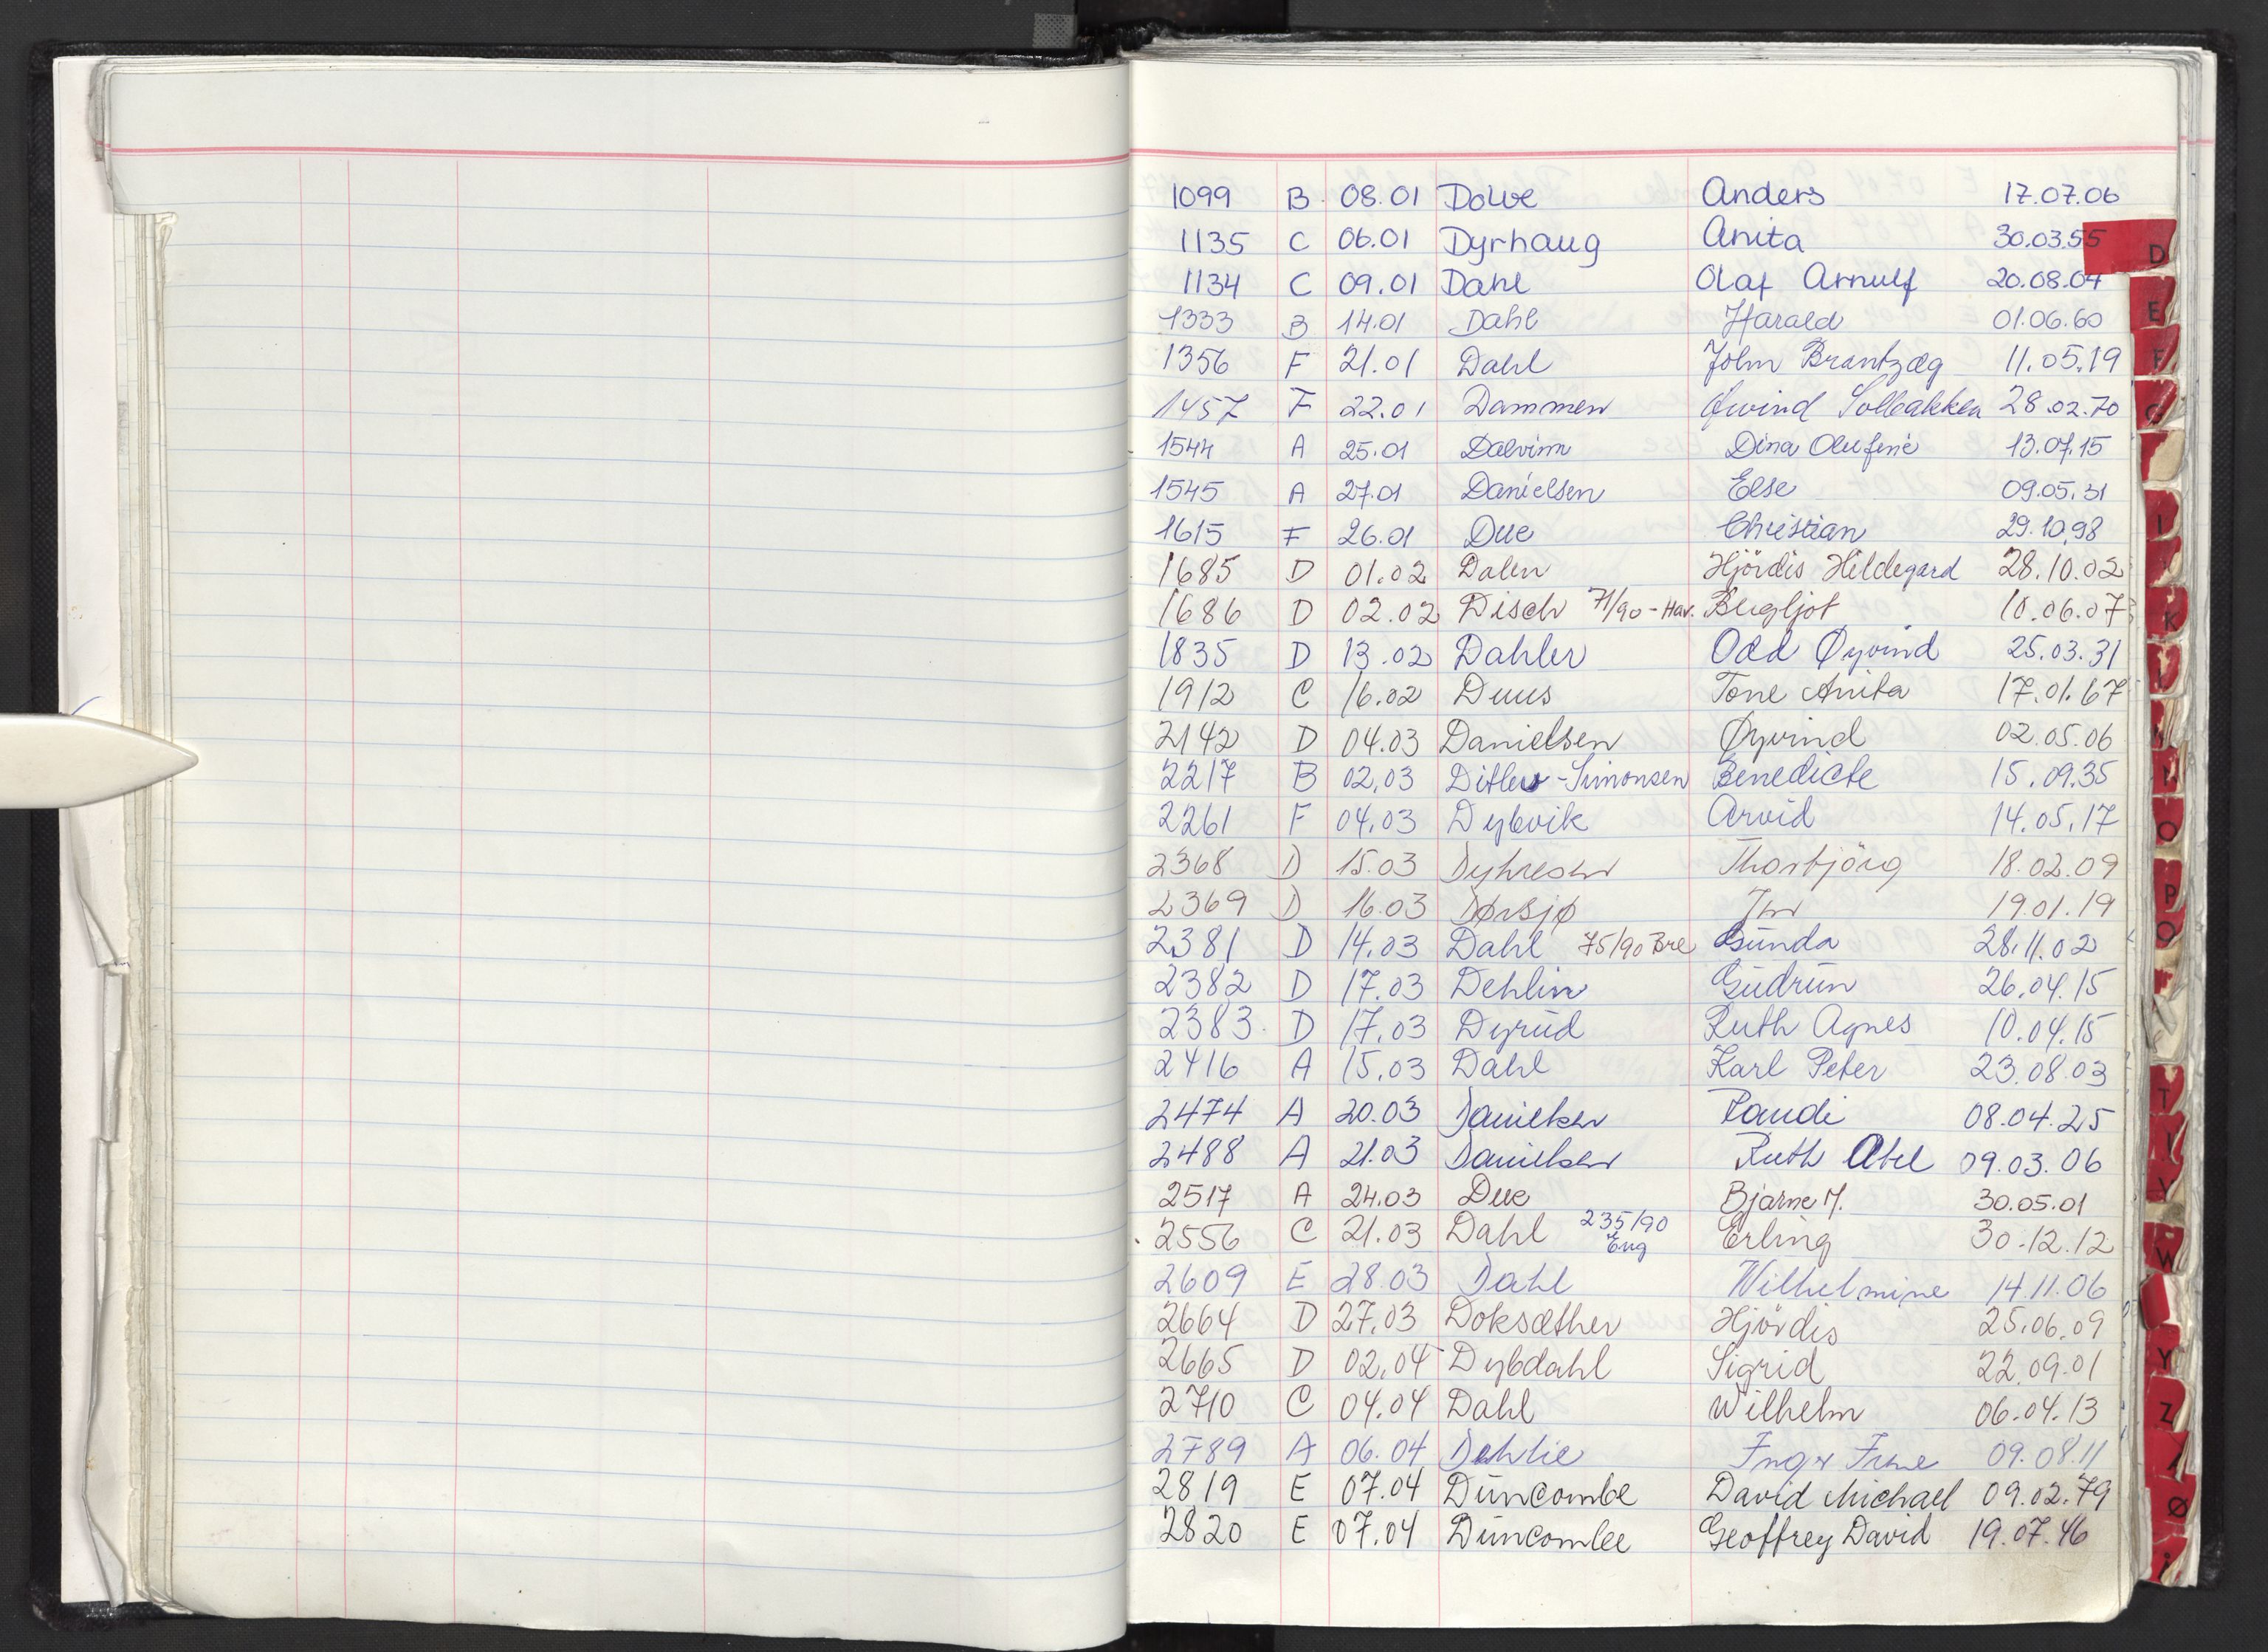 1099 B 08.01 Dowe Anders 17.07.06
1135 C 06.01 Dyrhaug Anita 30.03.55
1134 C 09.01 Dahl Olaf Arnulf 20.08.04
1333 B 14.01 Dahl Harald 01.06.60
1356 F 21.01 Dahl John Brantzæg 11.05.19
1457 F 22.01 Dammen Øivind Solbakken 28.02.70
1544 A 25.01 Dalvim Dina Olufine 13.07.15
1545 A 27.01 Danielsen Else 09.05.31
1615 F 26.01 Due Christian 29.10.98
1685 D 01.02 Dalen Hjördis Hildegard 28.10.02
1686 D 02.02 Disch 71/90 - Hav. Bergljot 10.06.07
1835 D 13.02 Dahler Odd Øyvind 25.03.31
1912 C 16.02 Duus Tone Anita 17.01.67
2142 D 04.03 Danielsen Øyvind 02.05.06
2217 B 02.03 Ditlev-Simonsen Benedicte 15.09.35
2261 F 04.03 Dybvik Arvid 14.05.17
2368 D 15.03 Dyhresen Thorbjörg 18.02.09
2369 D 16.03 Dørsjø 19.01.19
2381 D 14.03 Dahl 75/90 Bre Gunda 28.11.02
2382 D 17.03 Dehlin Gudrun 26.04.15
2383 D 17.03 Dyrud Ruth Agnes 10.04.15
2416 A 15.03 Dahl Karl Peter 23.08.03
2474 A 20.03 Danielsen Randi 08.04.25
2488 A 21.03 Danielsen Ruth Abel 09.03.06
2517 A 24.03 Due Bjarne M. 30.05.01
2556 C 21.03 Dahl 235/90 Eug Erling 30.12.12
2609 E 28.03 Dahl Wilhelmine 14.11.06
2664 D 27.03 Doksæther Hjördis 25.06.09
2665 D 02.04 Dybdahl Sigrid 22.09.01
2710 C 04.04 Dahl Wilhelm 06.04.13
2789 A 06.04 Dehlie Inger Irene 09.08.11
2819 E 07.04 Duncombe David Michael 09.02.79
2820 E 07.04 Duncombe Geoffrey David 19.07.46
D
E
F
G
I
K
N
O
P
Q
T
V
W
Y
Z
Ø